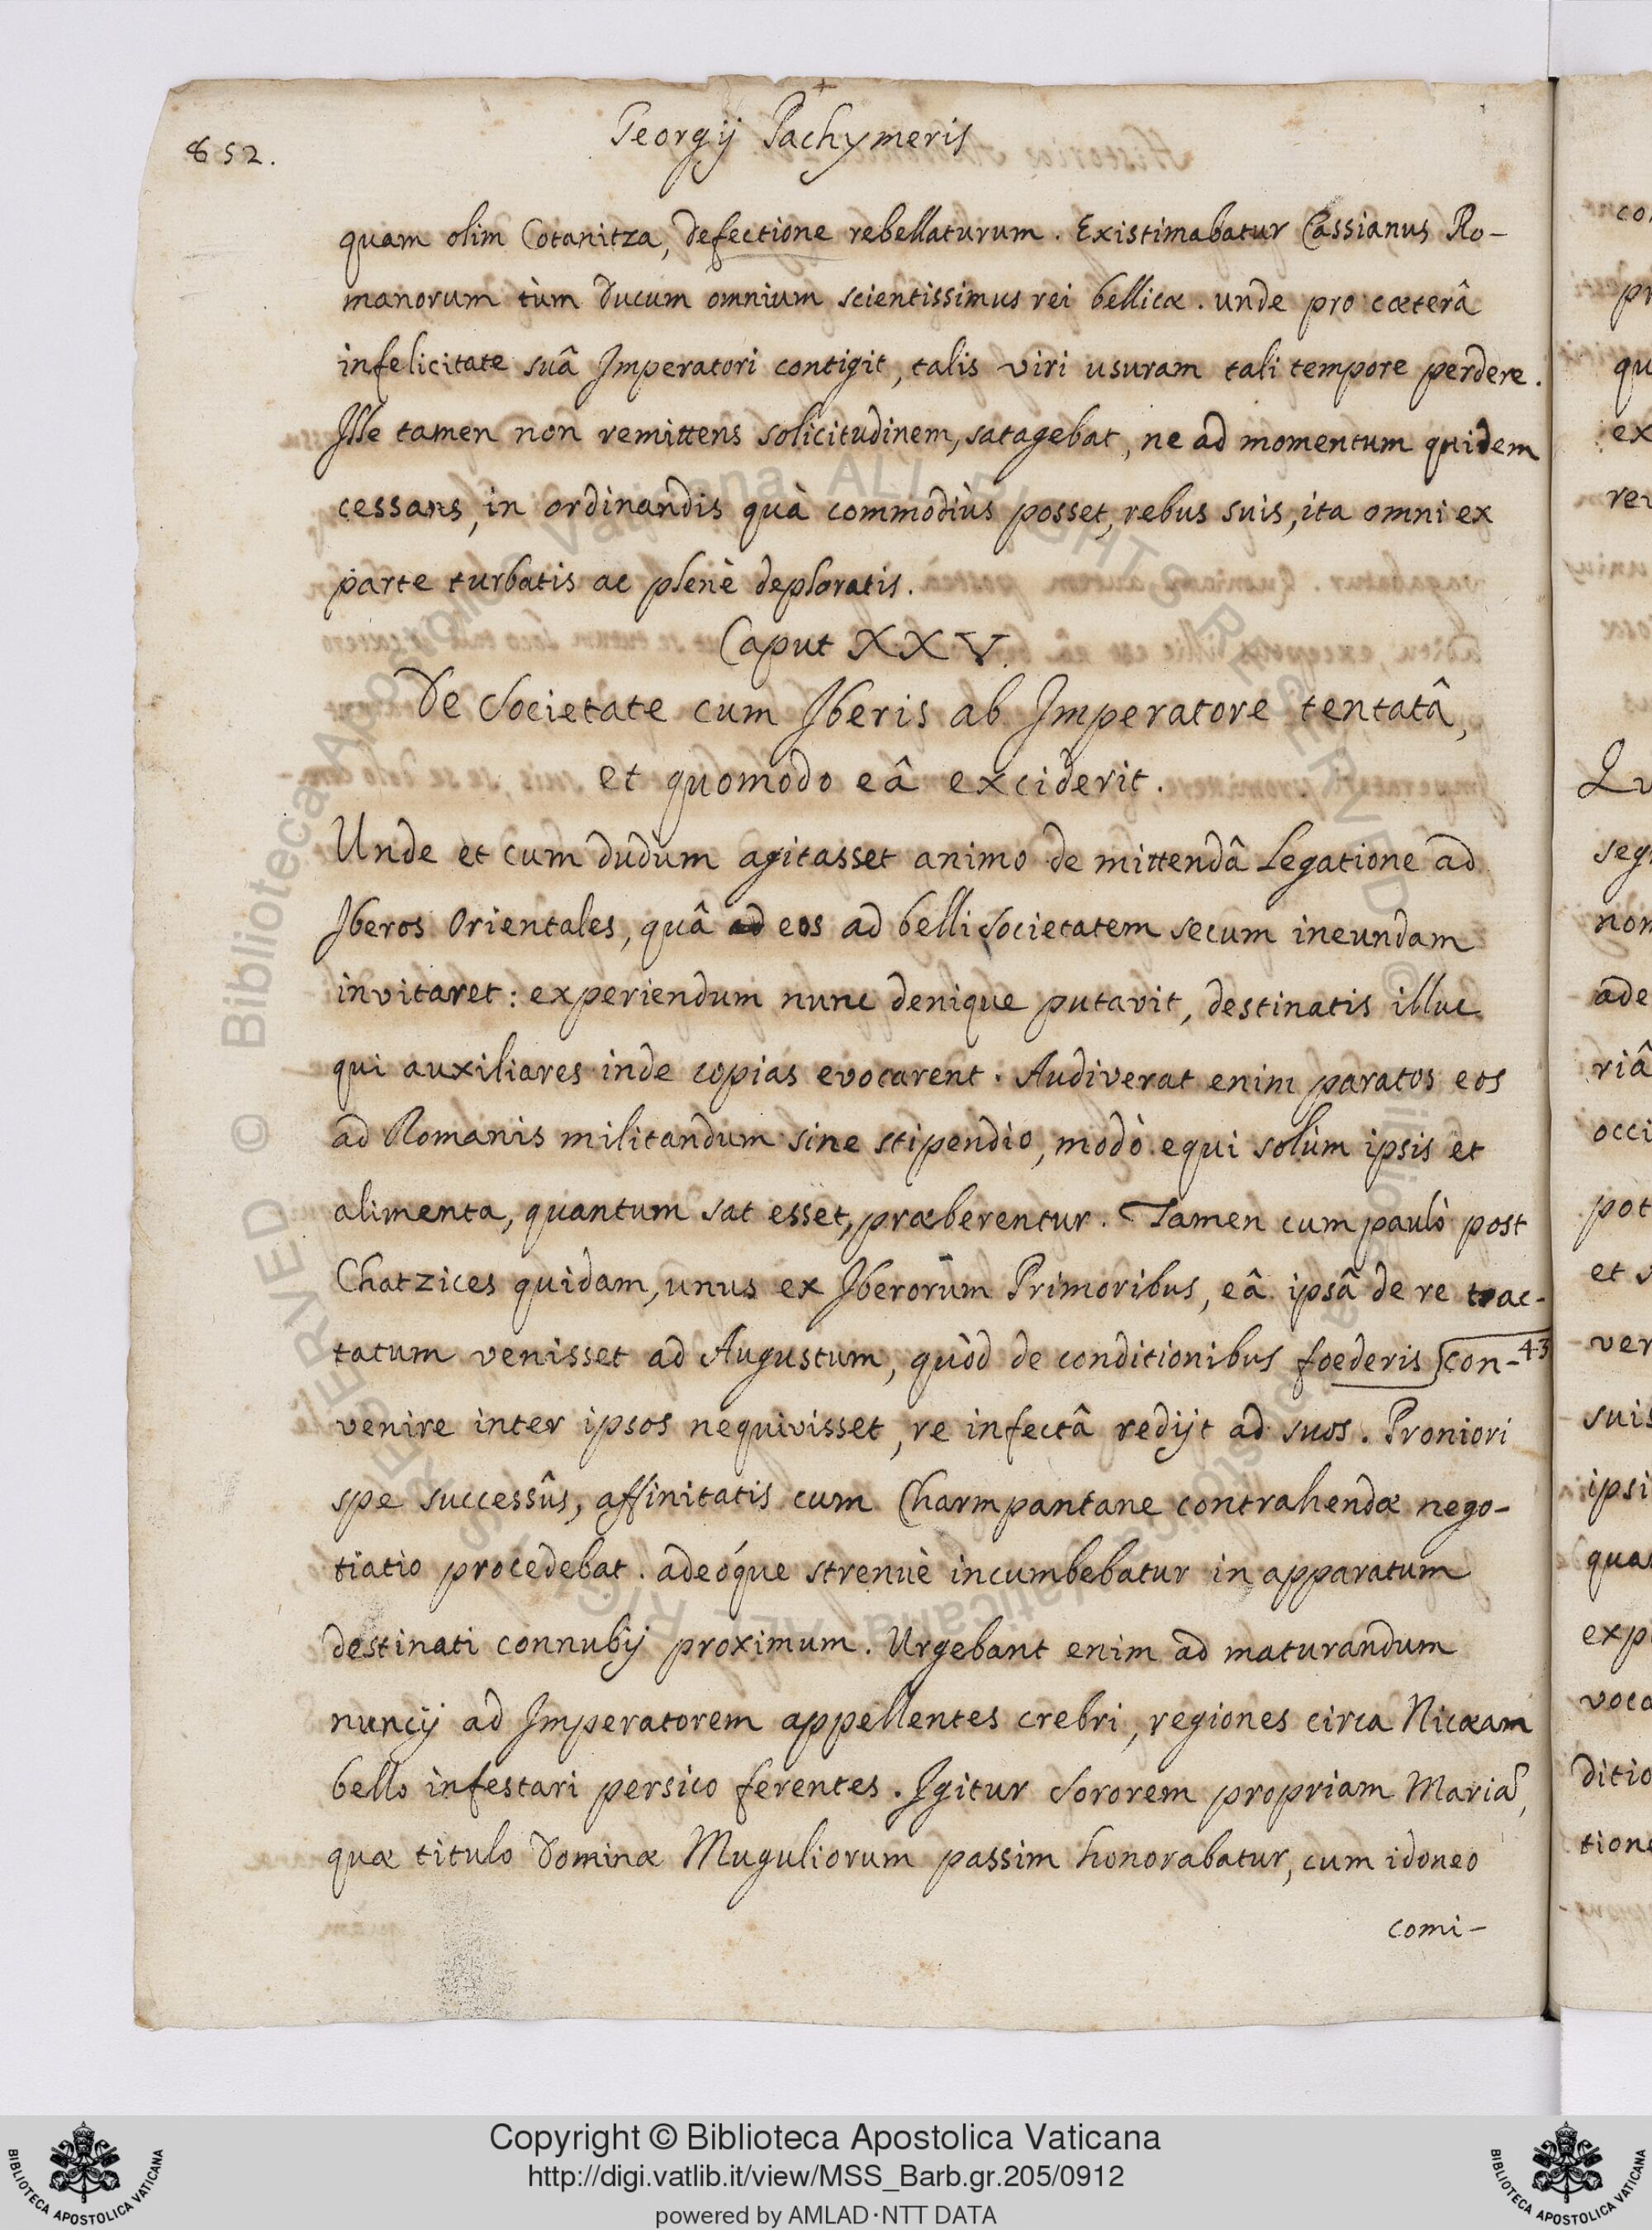 852.
Georgij Pachymeris
quam olim Cotanitza, defectione rebellaturum. Existimabatur Cassianus Ro-
manorum tùm Ducum omnium scientissimus rei bellicæ. unde pro cæterâ
infelicitate suâ Imperatori contigit, talis viri usuram tali tempore perdere.
Ille tamen non remittens solicitudinem, satagebat, ne ad momentum quidem
cessans, in ordinandis quà commodiùs posset, rebus suis, ita omni ex
parte turbatis ac plenè deploratis.
Caput XXV.
De Societate cum Iberis ab Imperatore tentatâ,
et quomodo eâ exciderit.
Unde et cum dudum agitasset animo de mittendâ Legatione ad
Iberos Orientales, quâ eos ad belli societatem secum ineundam
invitaret: experiendum nunc denique putavit, destinatis illuc
qui auxiliares inde copias evocarent. Audiverat enim paratos eos
ad Romanis militandum sine stipendio, modò equi solùm ipsis et
alimenta, quantum sat esset, præberentur. Tamen cum paulò post
Chatzices quidam, unus ex Iberorum Primoribus, eâ ipsâ de re trac-
tatum venisset ad Augustum, quòd de conditionibus foederis con- 43
venire inter ipsos nequivisset, re infectâ redijt ad suos. Proniori
spe successûs, affinitatis cum Charmpantane contrahendæ nego-
tiatio procedebat. adeóque strenuè incumbebatur in apparatum
destinati connubij proximum. Urgebant enim ad maturandum
nuncij ad Imperatorem appellentes crebri, regiones circa Nicæam
bello infestari persico ferentes. Igitur Sororem propriam Mariã,
quæ titulo Dominæ Muguliorum passim honorabatur, cum idoneo
comi-
Copyright © Biblioteca Apostolica Vaticana
http://digi.vatlib.it/view/MSS_Barb.gr.205/0912
powered by AMLAD·NTT DATA
BIBLIOTECA APOSTOLICA VATICANA
BIBLIOTECA APOSTOLICA VATICANA